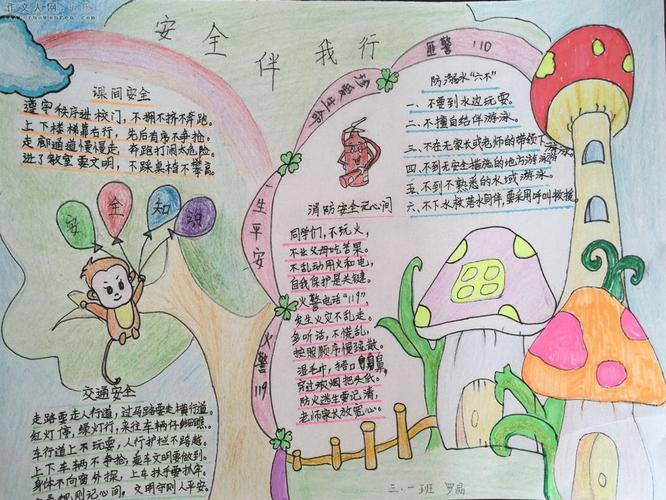 作文人网
安全伴我行
课间安全
遵守秩序进校门，不拥不挤不奔跑。
上下楼梯靠右行，先后有序不争抢。
走廊通道慢慢走，奔跑打闹太危险
进了教室要文明，不踩桌椅不攀
安全知识
交通安全
走路要走人行道，过马路要走横行道。
红灯停，绿灯行，来往车辆仔细瞧。
车行道上不玩耍，人行护栏不跨越。
上下车辆不争抢，乘车文明要做到。
身体不向窗外探，上车扶手要抓牢。
记心间，文明守则人平安。
珍爱生命
一生平安
火警119
匪警110
消防安全记心间
同学们，不玩火，
不让父母吃苦果。
不乱动用火和电，
自我保护是关键。
火警电话“119”，
发生火灾不乱走。
多听话，不慌乱，
按照顺序慢疏散。
湿毛巾，捂口鼻，
穿过浓烟把头低。
防火逃生要记清，
老师家长放宽心。
防溺水“六不”
一、不要到水边玩耍。
二、不擅自结伴游泳。
三、不在无家长或老师的带领下游泳
四、不到无安全措施的地方游泳
五、不到不熟悉的水域游泳
六、不下水救落水同伴，要采用呼叫救援
三.一班 罗晶